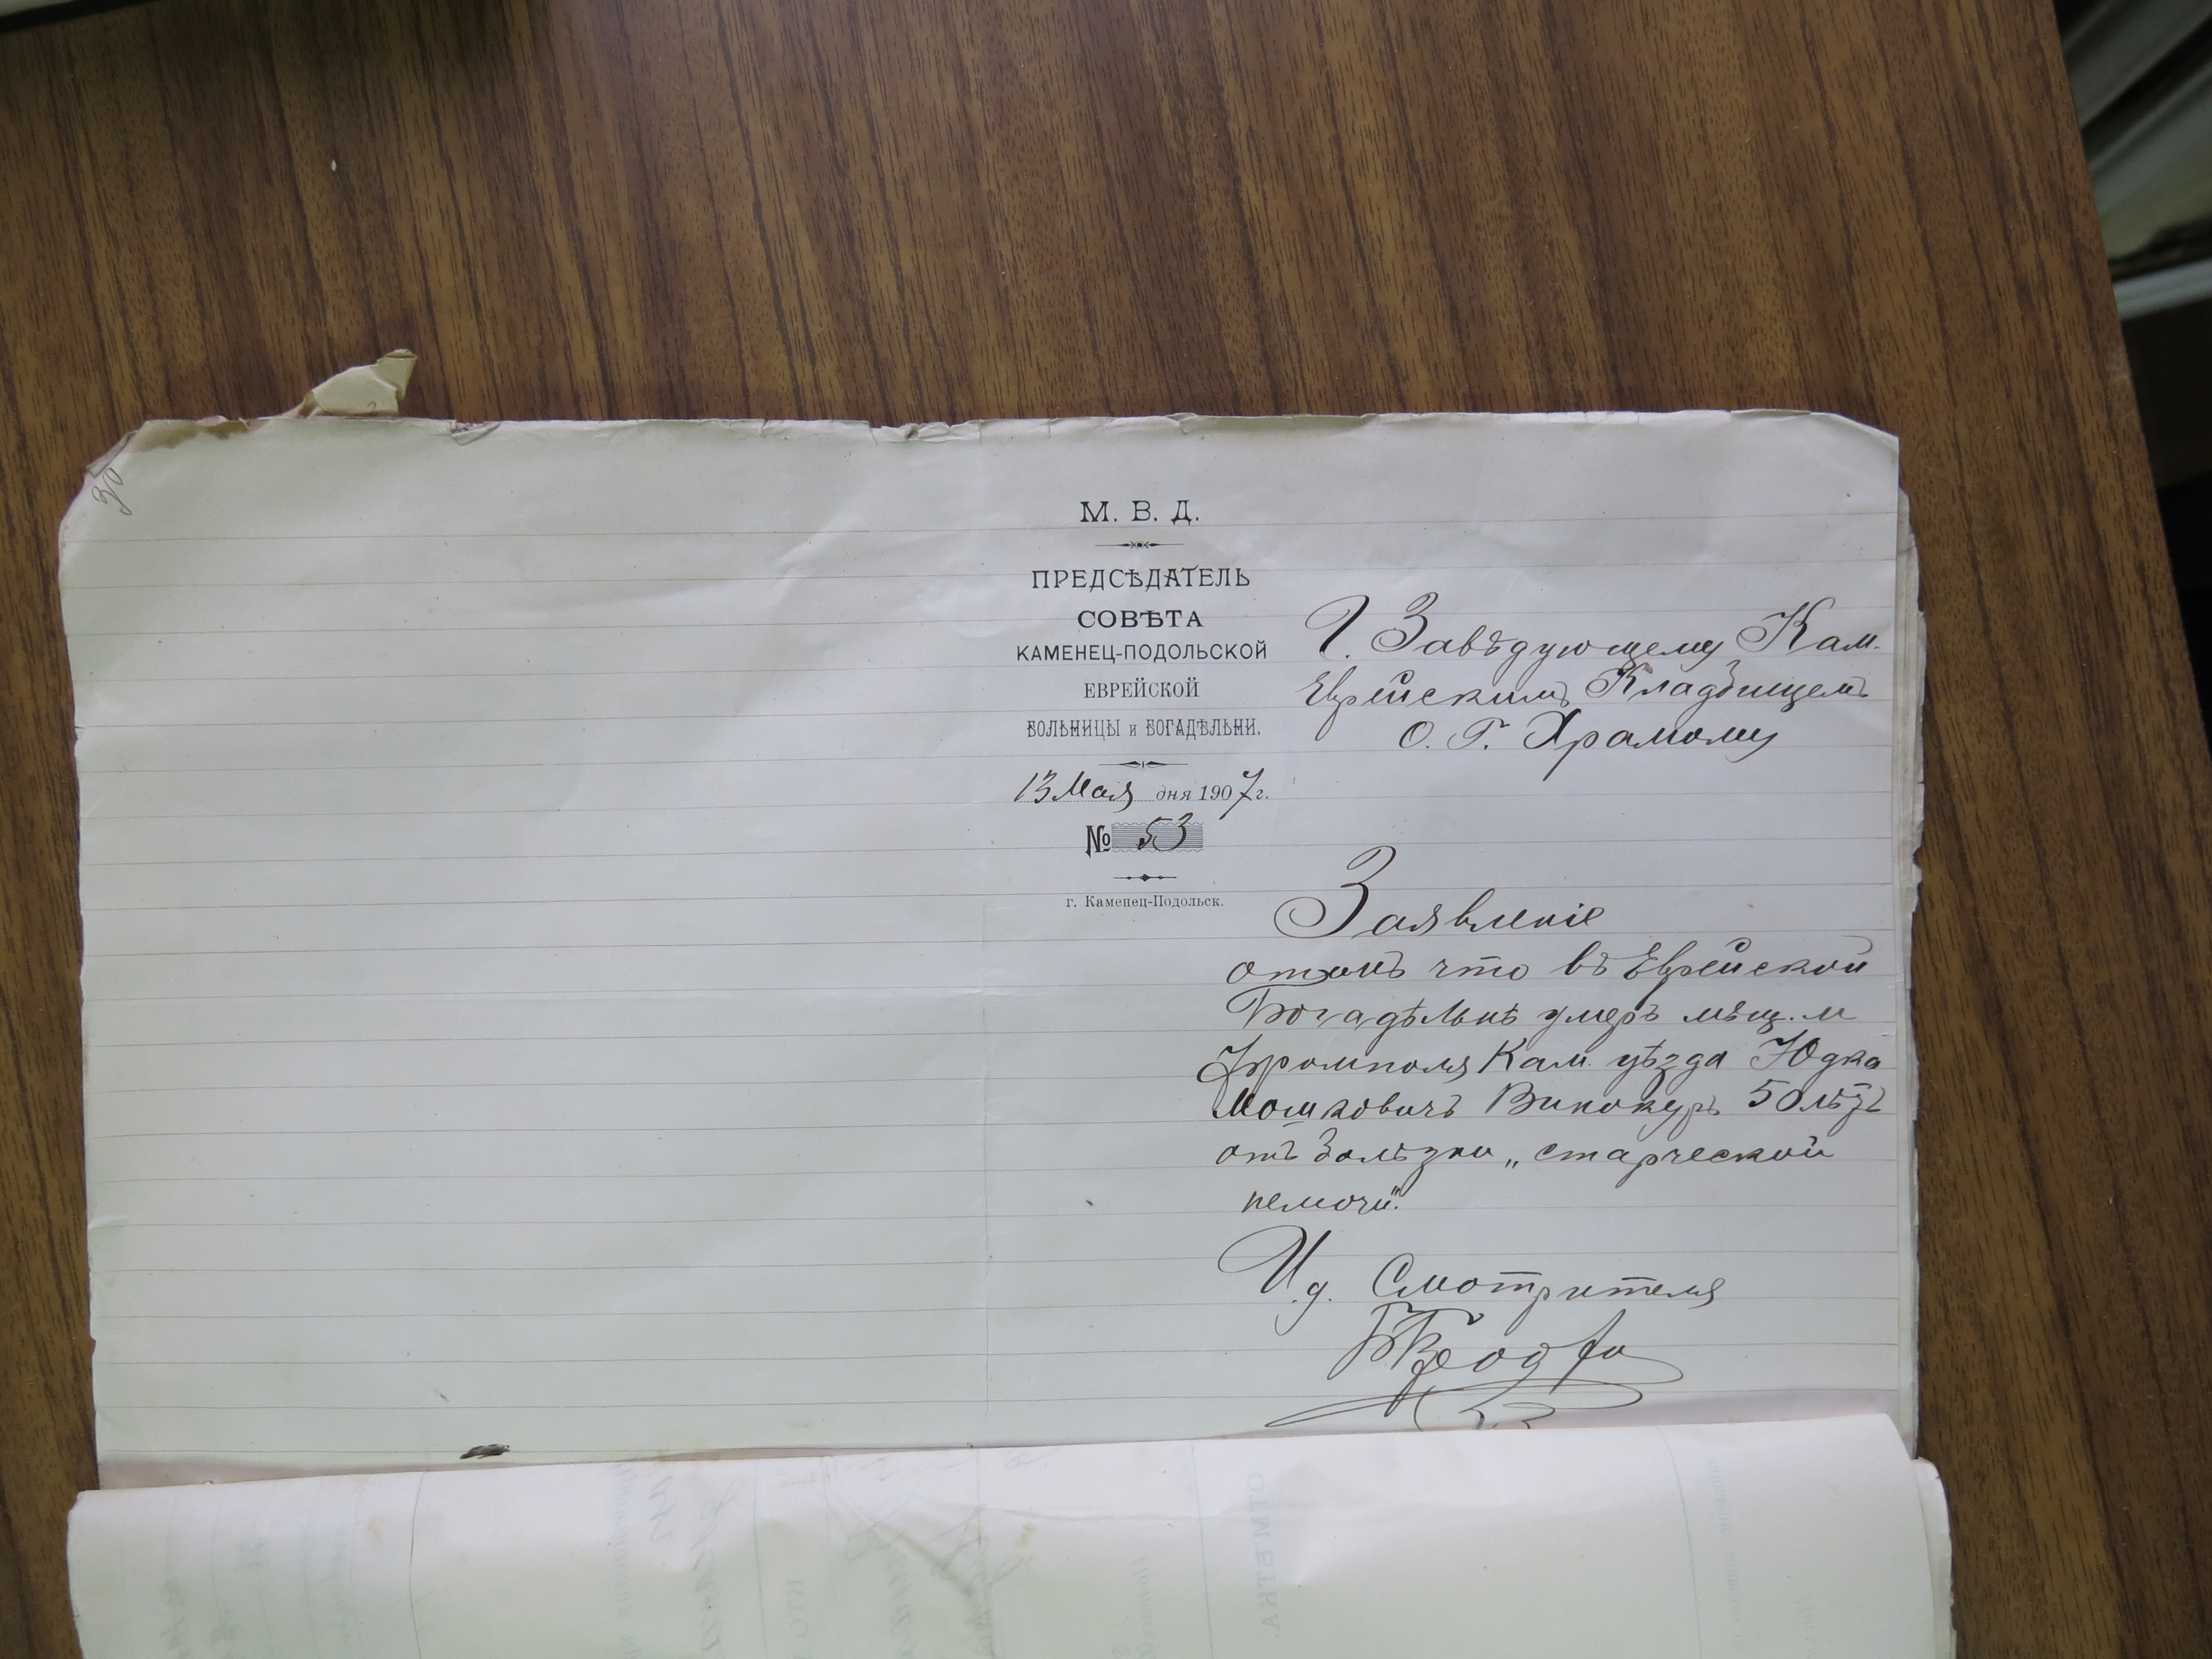 30
М. В. Д.
ПРЕДСѢДАТЕЛЬ
СОВѢТА
КАМЕНЕЦ-ПОДОЛЬСКОЙ
ЕВРЕЙСКОЙ
БОЛЬНИЦЫ и БОГАДѢЛЬНИ.
13 Мая дня 1907 г.
№ 53
г. Каменец-Подольск.
Г. Завѣдующему Кам.
Еврейскимъ Кладбищемъ
О. Г. Храмому
Заявленіе
отомъ что въ Еврейской
Богадѣльнѣ умеръ мѣщ. м
Кам. уѣзда Юдка
Мошковичъ Винокуръ 50 лѣтъ
отъ болѣзни „старческой
немочи".
И.д. Смотрителя